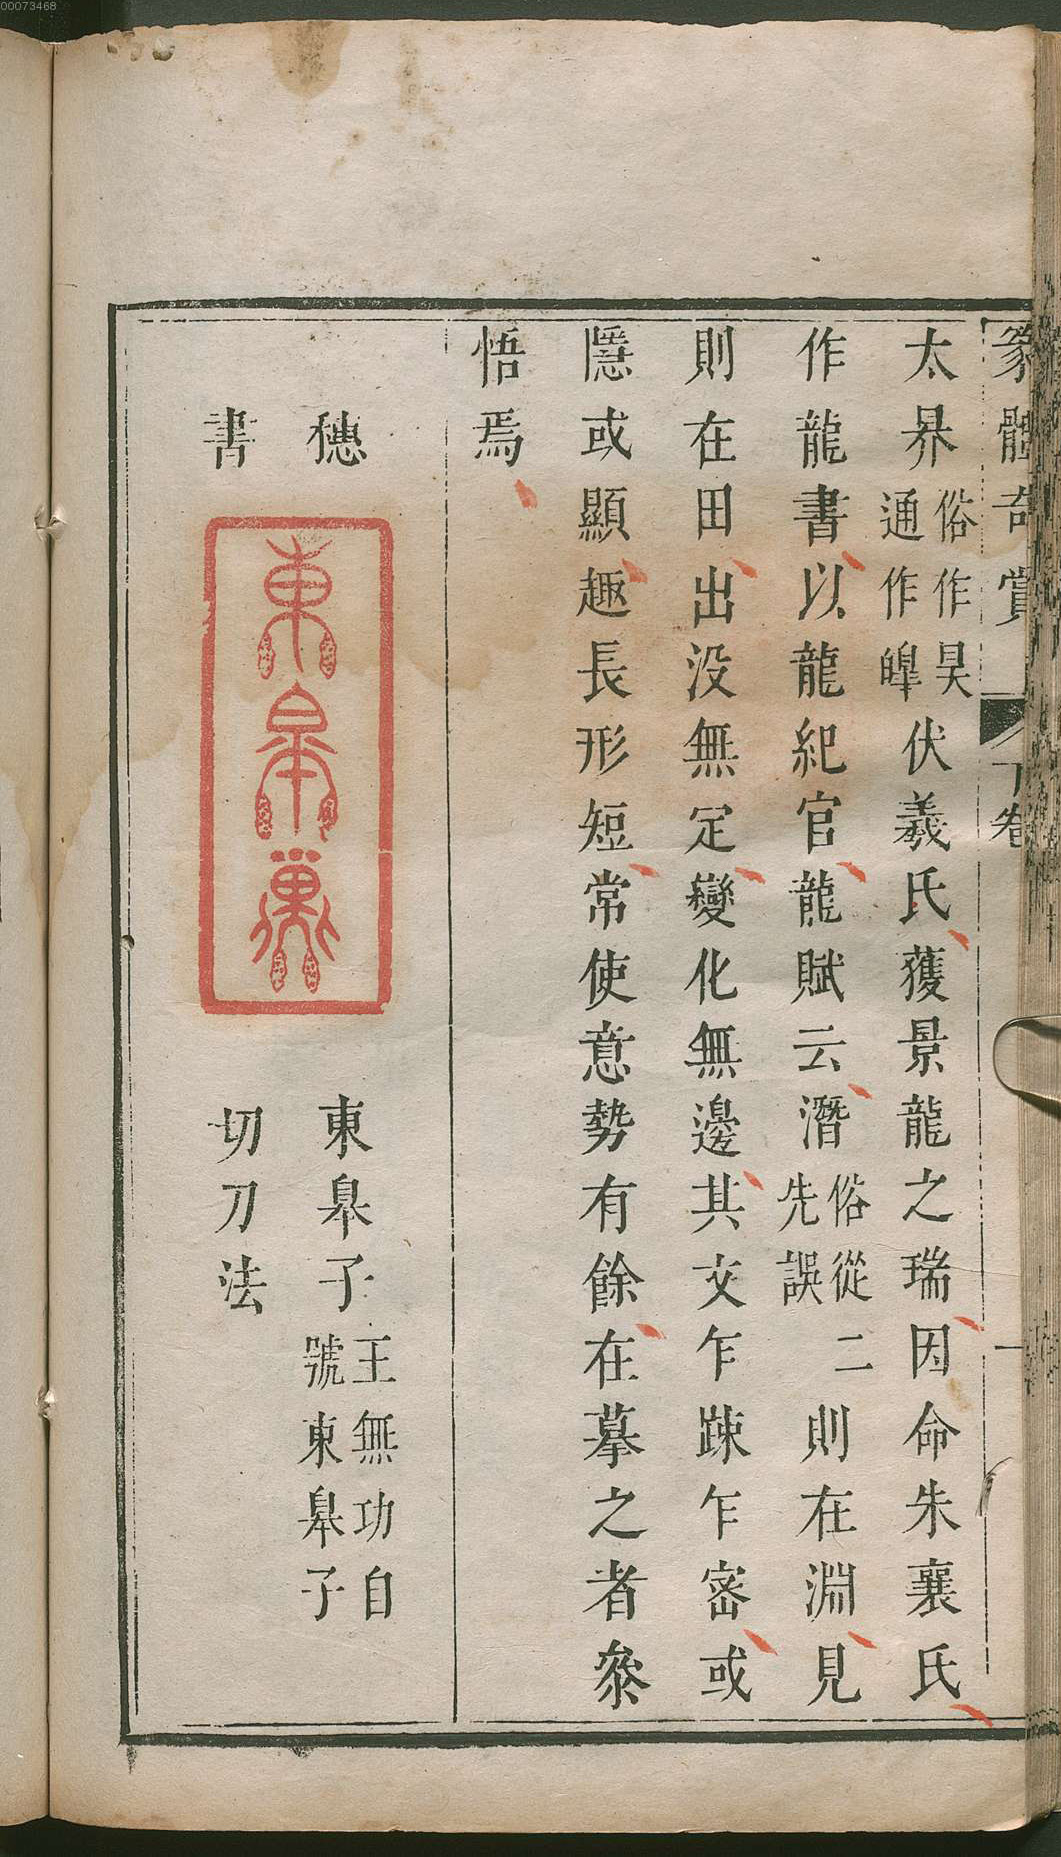 00073468
篆體奇賞 下卷 一
太昦俗作昊通作皥伏羲氏獲景龍之瑞因命朱襄氏
作龍書以龍紀官龍賦云潛俗從二先誤則在淵見
則在田出没無定變化無邊其文乍踈乍密或
隱或顯趣長形短常使意勢有餘在摹之者叅
悟焉
穗書
東皋巢
東臯子王無功自號東臯子
切刀法